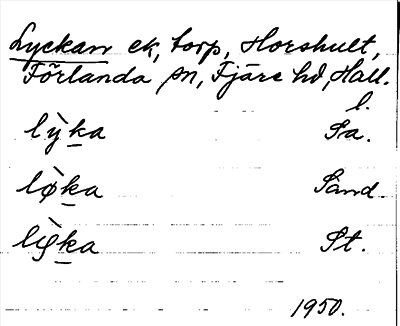 Lyckan ek, torp, Horshult,
Förlanda sn, Fjäre hd, Hall.
l.
lỳka Sa.
lø̀ka Sand.
Lyka St.
1950.